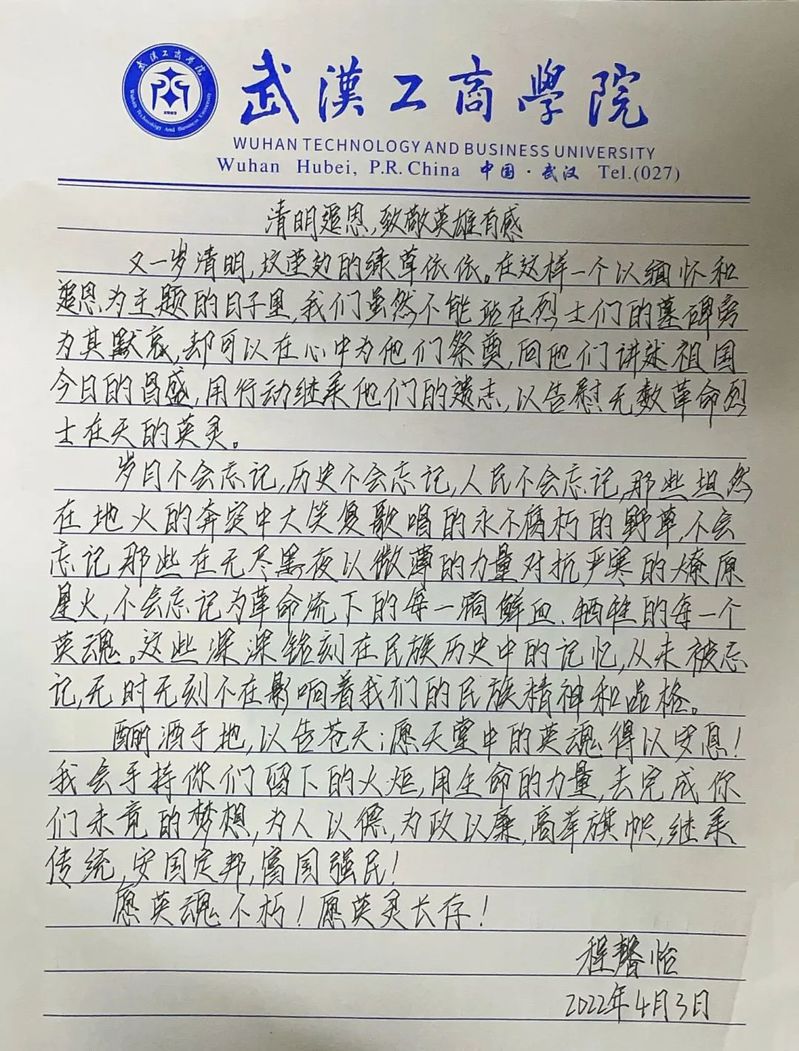 武漢工商學院
WUHAN TECHNOLOGY AND BUSINESS UNIVERSITY
Wuhan Hubei, P.R. China 中国·武汉 Tel.(027)
清明追思,致敬英雄有感
又一岁清明,坟茔边的绿草依依。在这样一个以缅怀和
追思为主题的日子里,我们虽然不能站在烈士们的墓碑旁
为其默哀,却可以在心中为他们祭奠,向他们讲述祖国
今日的昌盛,用行动继承他们的遗志,以告慰无数革命烈
士在天的英灵。
岁月不会忘记,历史不会忘记,人民不会忘记,那些坦然
在地火的奔突中大笑复歌唱的永不腐朽的野草,不会
忘记那些在无尽黑夜以微薄的力量对抗严寒的燎原
星火,不会忘记为革命流下的每一滴鲜血、牺牲的每一个
英魂。这些深深铭刻在民族历史中的记忆,从未被忘
记,无时无刻不在影响着我们的民族精神和品格。
酾酒于地,以告苍天;愿天堂中的英魂得以安息!
我会手持你们留下的火炬,用生命的力量,去完成你
们未竟的梦想,为人以儒,为政以廉,高举旗帜,继承
传统,安国定邦,富国强民!
愿英魂不朽!愿英灵长存!
程馨怡
2022年4月3日